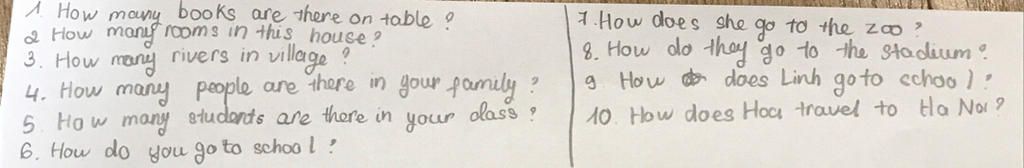 1. How many books are there on table ?
2 How many rooms in this house?
3. How many rivers in village ?
4. How many people are there in your family ?
5. How many students are there in your class ?
6. How do you go to school ?
7. How does she go to the zoo ?
8. How do they go to the stadium ?
9 How does Linh go to cchool ?
10. How does Hoa travel to Ha Noi ?